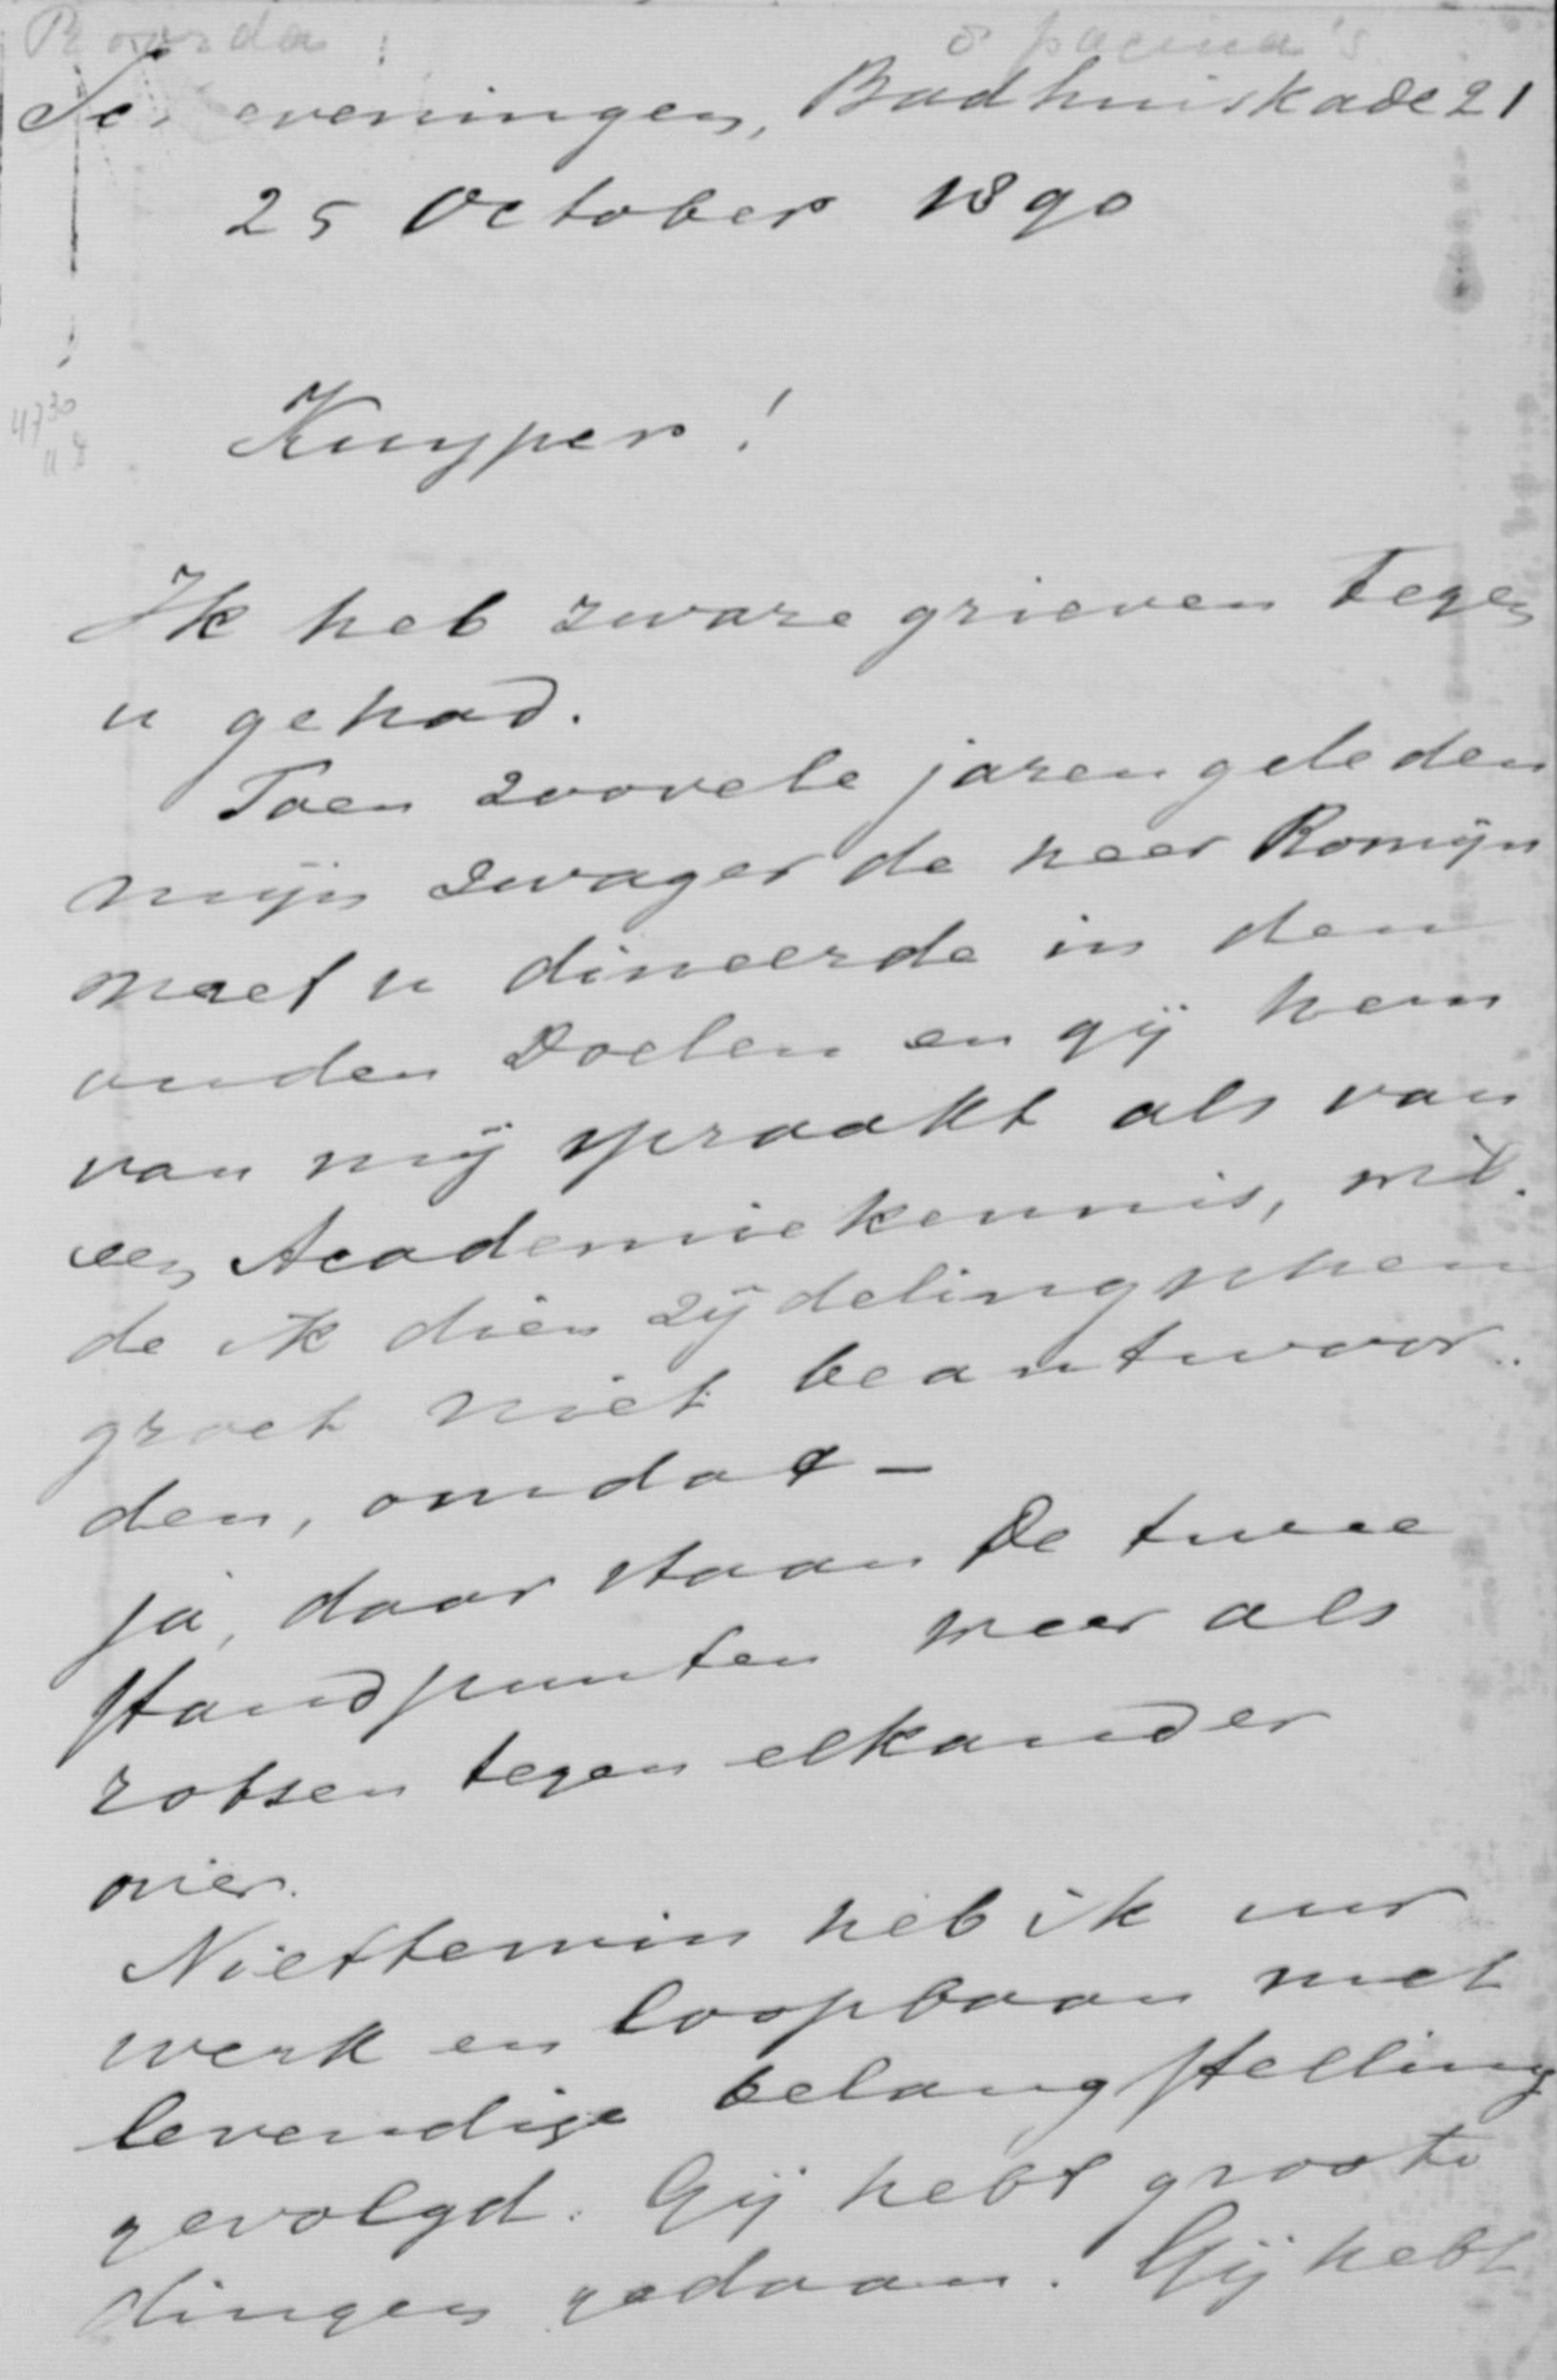 Roorda
8 pagina's
Scheveningen, Badhuiskade 21
25 October 1890
4730
118
Kuyper!
Ik heb zware grieven tegen
u gehad.
Toen zoovele jaren geleden
mijn zwager de heer Romijn
met u dineerde in den
ouden Doelen en gij hem
van mij spraakt als van
een Academiekennis, wil-
de ik dien zijdelingschen
groet niet beantwoor-
den, omdat —
ja, daar staan de twee
standpunten weer als
rotsen tegen elkander
over.
Niettemin heb ik uw
werk en loopbaan met
levendige belangstelling
gevolgd. Gij hebt groote
dingen gedaan. Gij hebt